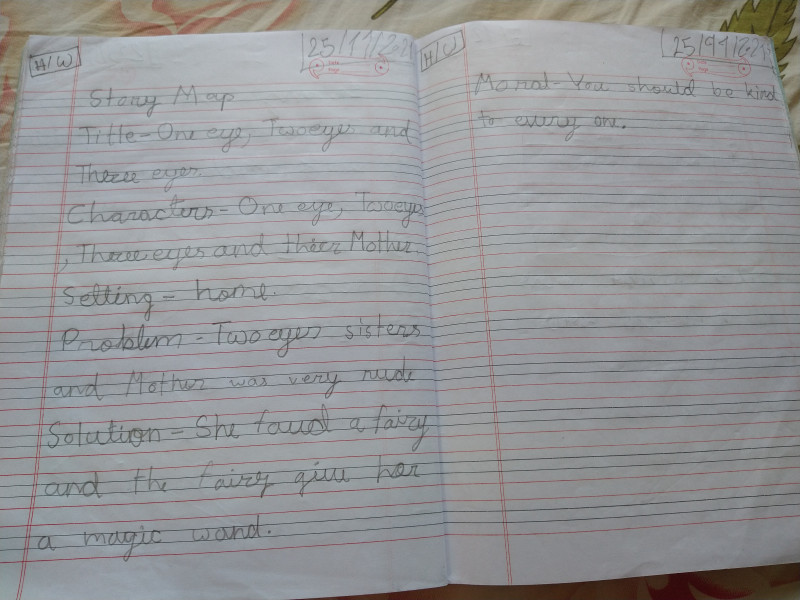 H/W
25/11/2021
Story Map
Title - One eye, Two eyes and
Three eyes.
Characters - One eye, Two eyes
, Three eyes and their Mother
Setting - home.
Problem - Two eyes sisters
and Mother was very rude
Solution - She foud a fairy
and the fairy give her
a magic wand.
H/W
25/11/2021
Moral - You should be kind
to every one.